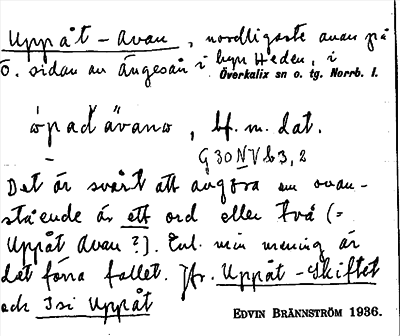 Uppåt-avan, nordligaste avan på
ö. sidan av Ängesån i byn Heden, i
Överkalix sn o. tg. Norrb. l.
bf. m. dat.
G30NVb3,2
Det är svårt att avgöra om ovan-
stående är ett ord eller två (=
Uppåt Avan?). Enl. min mening är
det förra fallet. Jfr. Uppåt-Skiftet
och Isi Uppåt
EDVIN BRÄNNSTRÖM 1936.